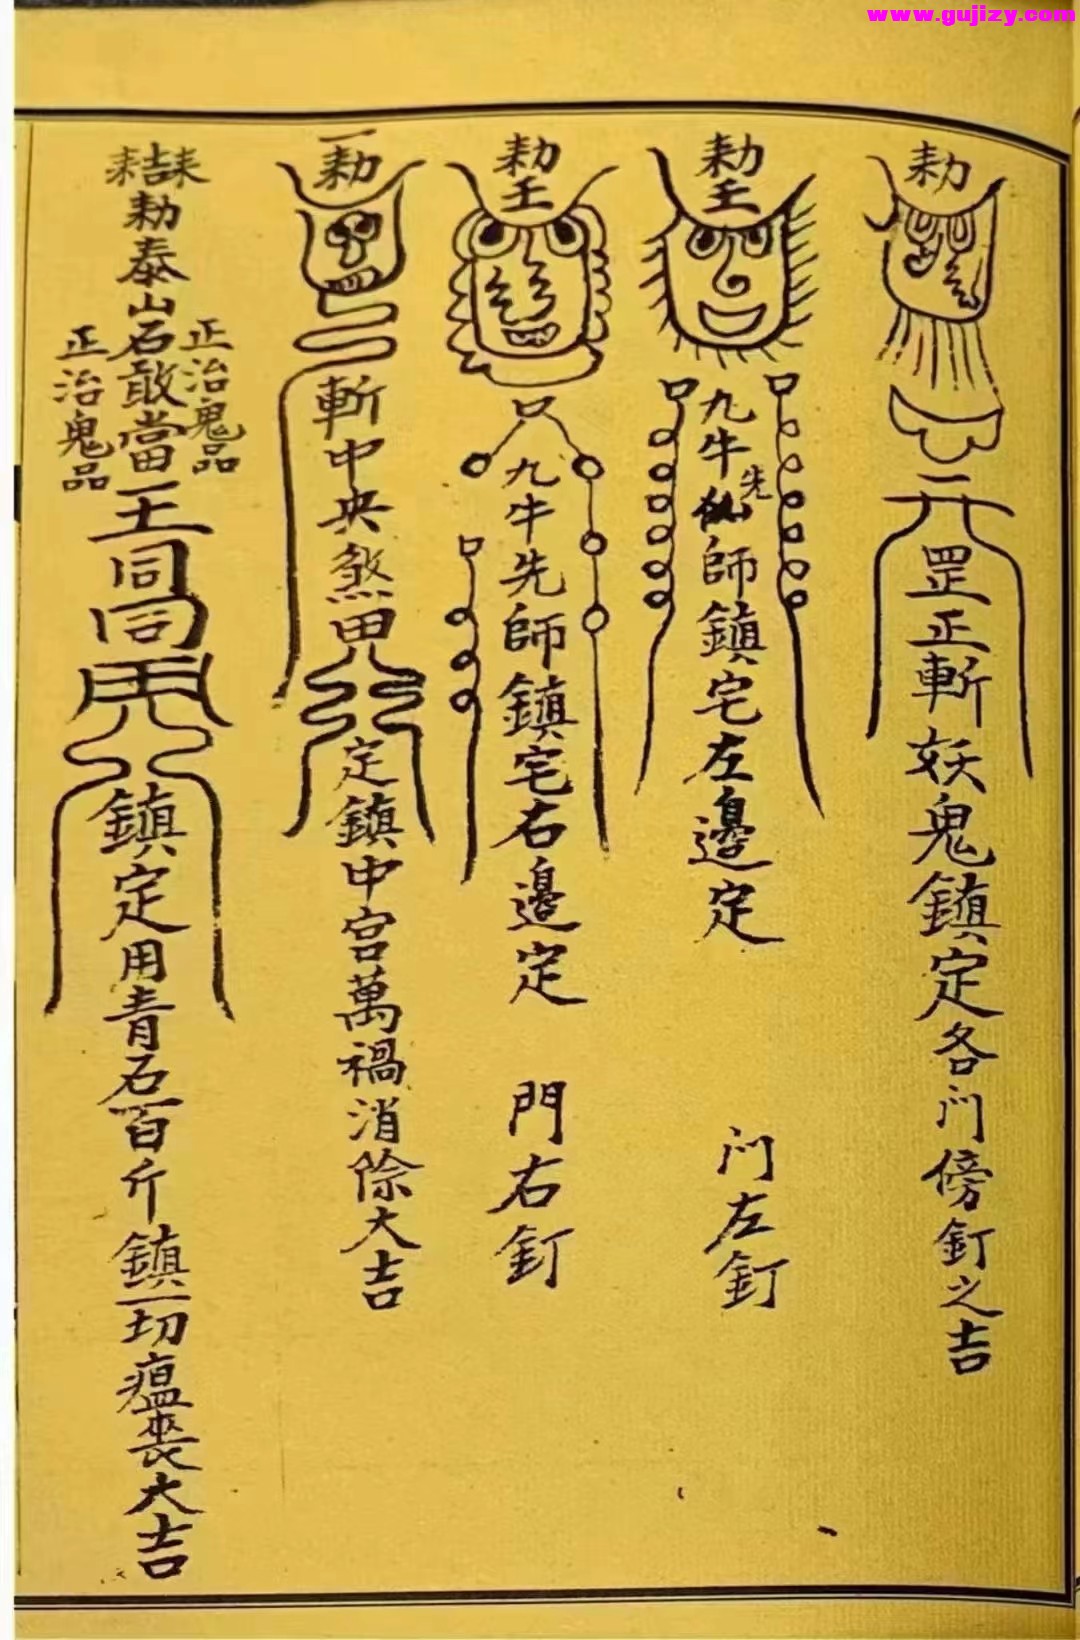 www.gujizy.com
勅
罡正斬妖鬼鎮定各门傍釘之吉
勅
王
九牛仙先師鎮宅左邊定
门左釘
勅
王
九牛先師鎮宅右邊定
門右釘
勅
斬中央煞
定鎮中宮萬禍消除大吉
勅泰山石敢當
正治鬼品
正治鬼品
王同同
鎮定用青石一百斤鎮一切瘟喪大吉